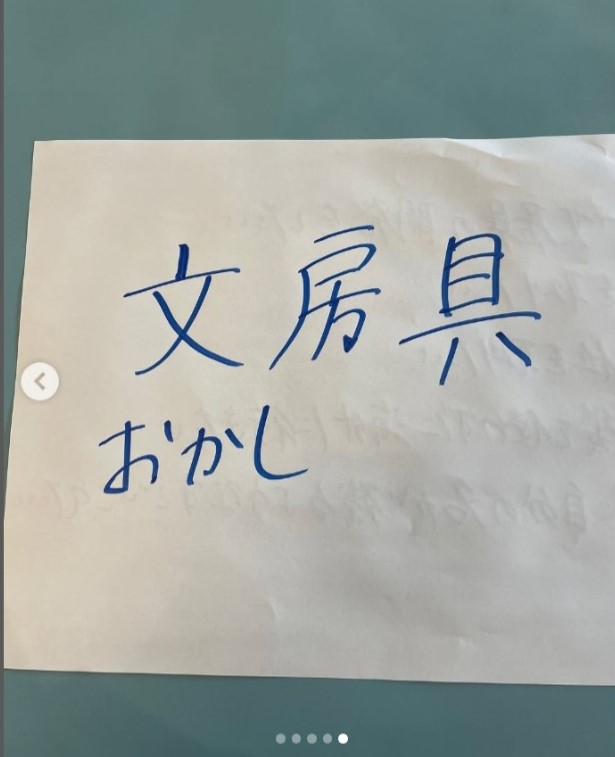 文房具
おかし